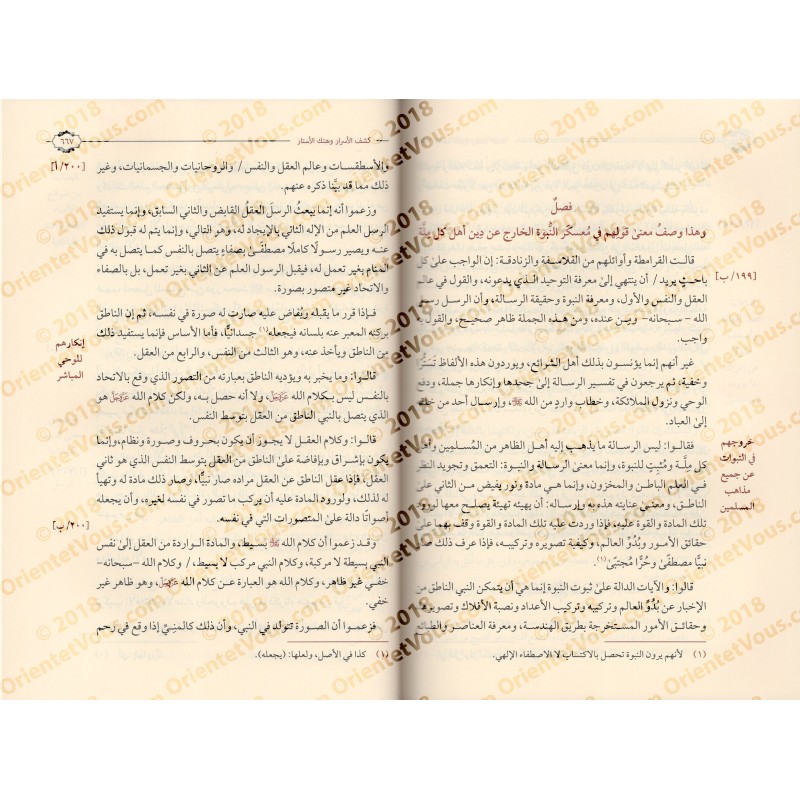 فصلٌ
وهذا وصفُ معنىٰ قولِهم في مُعسكَر النُّبوة الخارج عن دِين أهل كل مِلَّة
قالت القرامطة وأوائلهم من الفلاسفة والزنادقة: إن الواجب علىٰ كل
باحثٍ يريد/ أن ينتهي إلىٰ معرفة التوحيد الذي يدعونه، والقول في عالم
[١٩٩/ب]
العقل والنفس والأول، ومعرفة النبوة وحقيقة الرسالة، وأن الرسل رسل
الله -سبحانه- ومِن عنده، ومن هذه الجملة ظاهر صحيح، والقول به
واجب.
غير أنهم إنما يؤنسون بذلك أهل الشرائع، ويوردون هذه الألفاظ تَسَتُّرًا
وخفية، ثم يرجعون في تفسير الرسالة إلىٰ جحدها وإنكارها جملة، ودفع
الوحي ونزول الملائكة، وخطاب واردٍ من الله ﷻ، وإرسال أحد من خلقه
إلىٰ العباد.
خروجهم
في النبوات
عن جميع
مذاهب
المسلمين
فقالوا: ليس الرسالة ما يذهب إليه أهل الظاهر من المُسلمِين وأهل
كل مِلَّة ومُثبِتٍ للنبوة، وإنما معنىٰ الرسالة والنبوة: التعمق وتجويد النظر
في العلم الباطن والمخزون، وإنما هي مادة ونور يفيض من الثاني علىٰ
الناطق، ومعنىٰ عنايته هذه به وإرساله: أن يهيئه تهيئة يصلح معها لورود
تلك المادة والقوة عليه، فإذا وردت عليه تلك المادة والقوة وقف بهما علىٰ
حقائق الأمور وبُدُوِّ العالم، وكيفية تصويره وتركيبه، فإذا عرف ذلك صار
نبيًّا مصطفًىٰ وحُرًّا مُجتبًىٰ(١).
قالوا: والآيات الدالة علىٰ ثبوت النبوة إنما هي أن يتمكن النبي من
الإخبار عن بُدُوِّ العالم وتركيبه وتركيب الأعداد ونصبة الأفلاك وتصويرها
وحقائق الأمور المستخرجة بطريق الهندسة، ومعرفة العناصر والطبائع
(١) لأنهم يرون النبوة تحصل بالاكتساب لا الاصطفاء الإلهي.
كشف الأسرار وهتك الأستار
٦٦٧
والأسطقسات وعالم العقل والنفس/ والروحانيات والجسمانيات، وغير
[٢٠٠/أ]
ذلك مما قد بيَّنا ذكره عنهم.
وزعموا أنه إنما يبعثُ الرسلَ العقلُ القابض والثاني السابق، وإنما يستفيد
العلم من الإله الثاني بالإيجاد له، وهو التالي، وإنما يتم له قبول ذلك
عنه ويصير رسولًا كاملًا مصطفًىٰ بصفاءٍ يتصل بالنفس كما يتصل به في
المنام بغير تعمل له، فيقبل الرسول العلم عن الثاني بغير تعمل، بل بالصفاء
والاتحاد غير متصور بصورة.
إنكارهم
للوحي
المباشر
فإذا قر ما يقبله ويُفاض عليه صارت له صورة في نفسه، ثم إن الناطق
بركنه المعبر عنه بلسانه فيجعله(١) جسدانيًّا، فأما الأساس فإنما يستفيد ذلك
من الناطق ويأخذ عنه، وهو الثالث من النفس، والرابع من العقل.
قالوا: وما يخبر به ويؤديه الناطق بعبارته من التصور الذي وقع بالاتحاد
بالنفس ليس بكلام الله ﷿، ولا أنه حصل به، ولكن كلام الله ﷿ هو
الذي يتصل بالنبي الناطق من العقل بتوسط النفس.
قالوا: وكلام العقل لا يجوز أن يكون بحروف وصورة ونظام، وإنما
يكون بإشراق وبإفاضة علىٰ الناطق من العقل بتوسط النفس، وكلام العقل
القطل، فإذا عقل الناطق عن العقل مراده صار نبيًّا، وصار ذلك مادة له وتهيأ
له لذلك، ولورود المادة عليه أن يركب ما تصور في نفسه لغيره، وأن يجعله
أصواتًا دالة علىٰ المتصورات التي في نفسه.
[٢٠٠/ب]
وقد زعموا أن كلام الله ﷻ بسيط، والمادة الواردة من العقل إلىٰ نفس
النبي بسيطة لا مركبة، وكلام النبي مركب لا بسيط،/ وكلام الله -سبحانه-
خفي غير ظاهر، وكلام الله هو العبارة عن كلام الله ﷿، وهو ظاهر غير
خفي.
فزعموا أن الصورة تتولد في النبي، وأن ذلك كالمنيِّ إذا وقع في رحم
(١) كذا في الأصل، ولعلها: (يجعله).
© 2018
OrientetVous.com